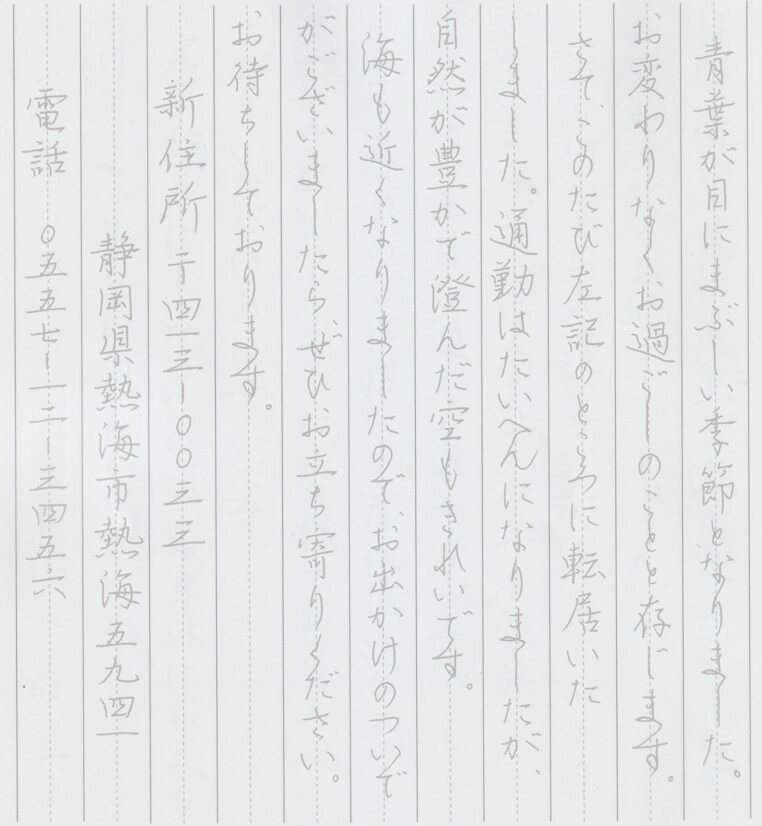 青葉が目にまぶしい季節となりました。
お変わりなくお過ごしのことと存じます。
さて、このたび左記のところに転居いた
しました。通勤はたいへんになりましたが、
自然が豊かで澄んだ空もきれいです。
海も近くなりましたので、お出かけのついで
がございましたら、ぜひお立ち寄りください。
お待ちしております。
新住所 〒四一三ー〇〇三三
静岡県熱海市熱海五九四一
電話 〇五五七ー一二ー三四五六